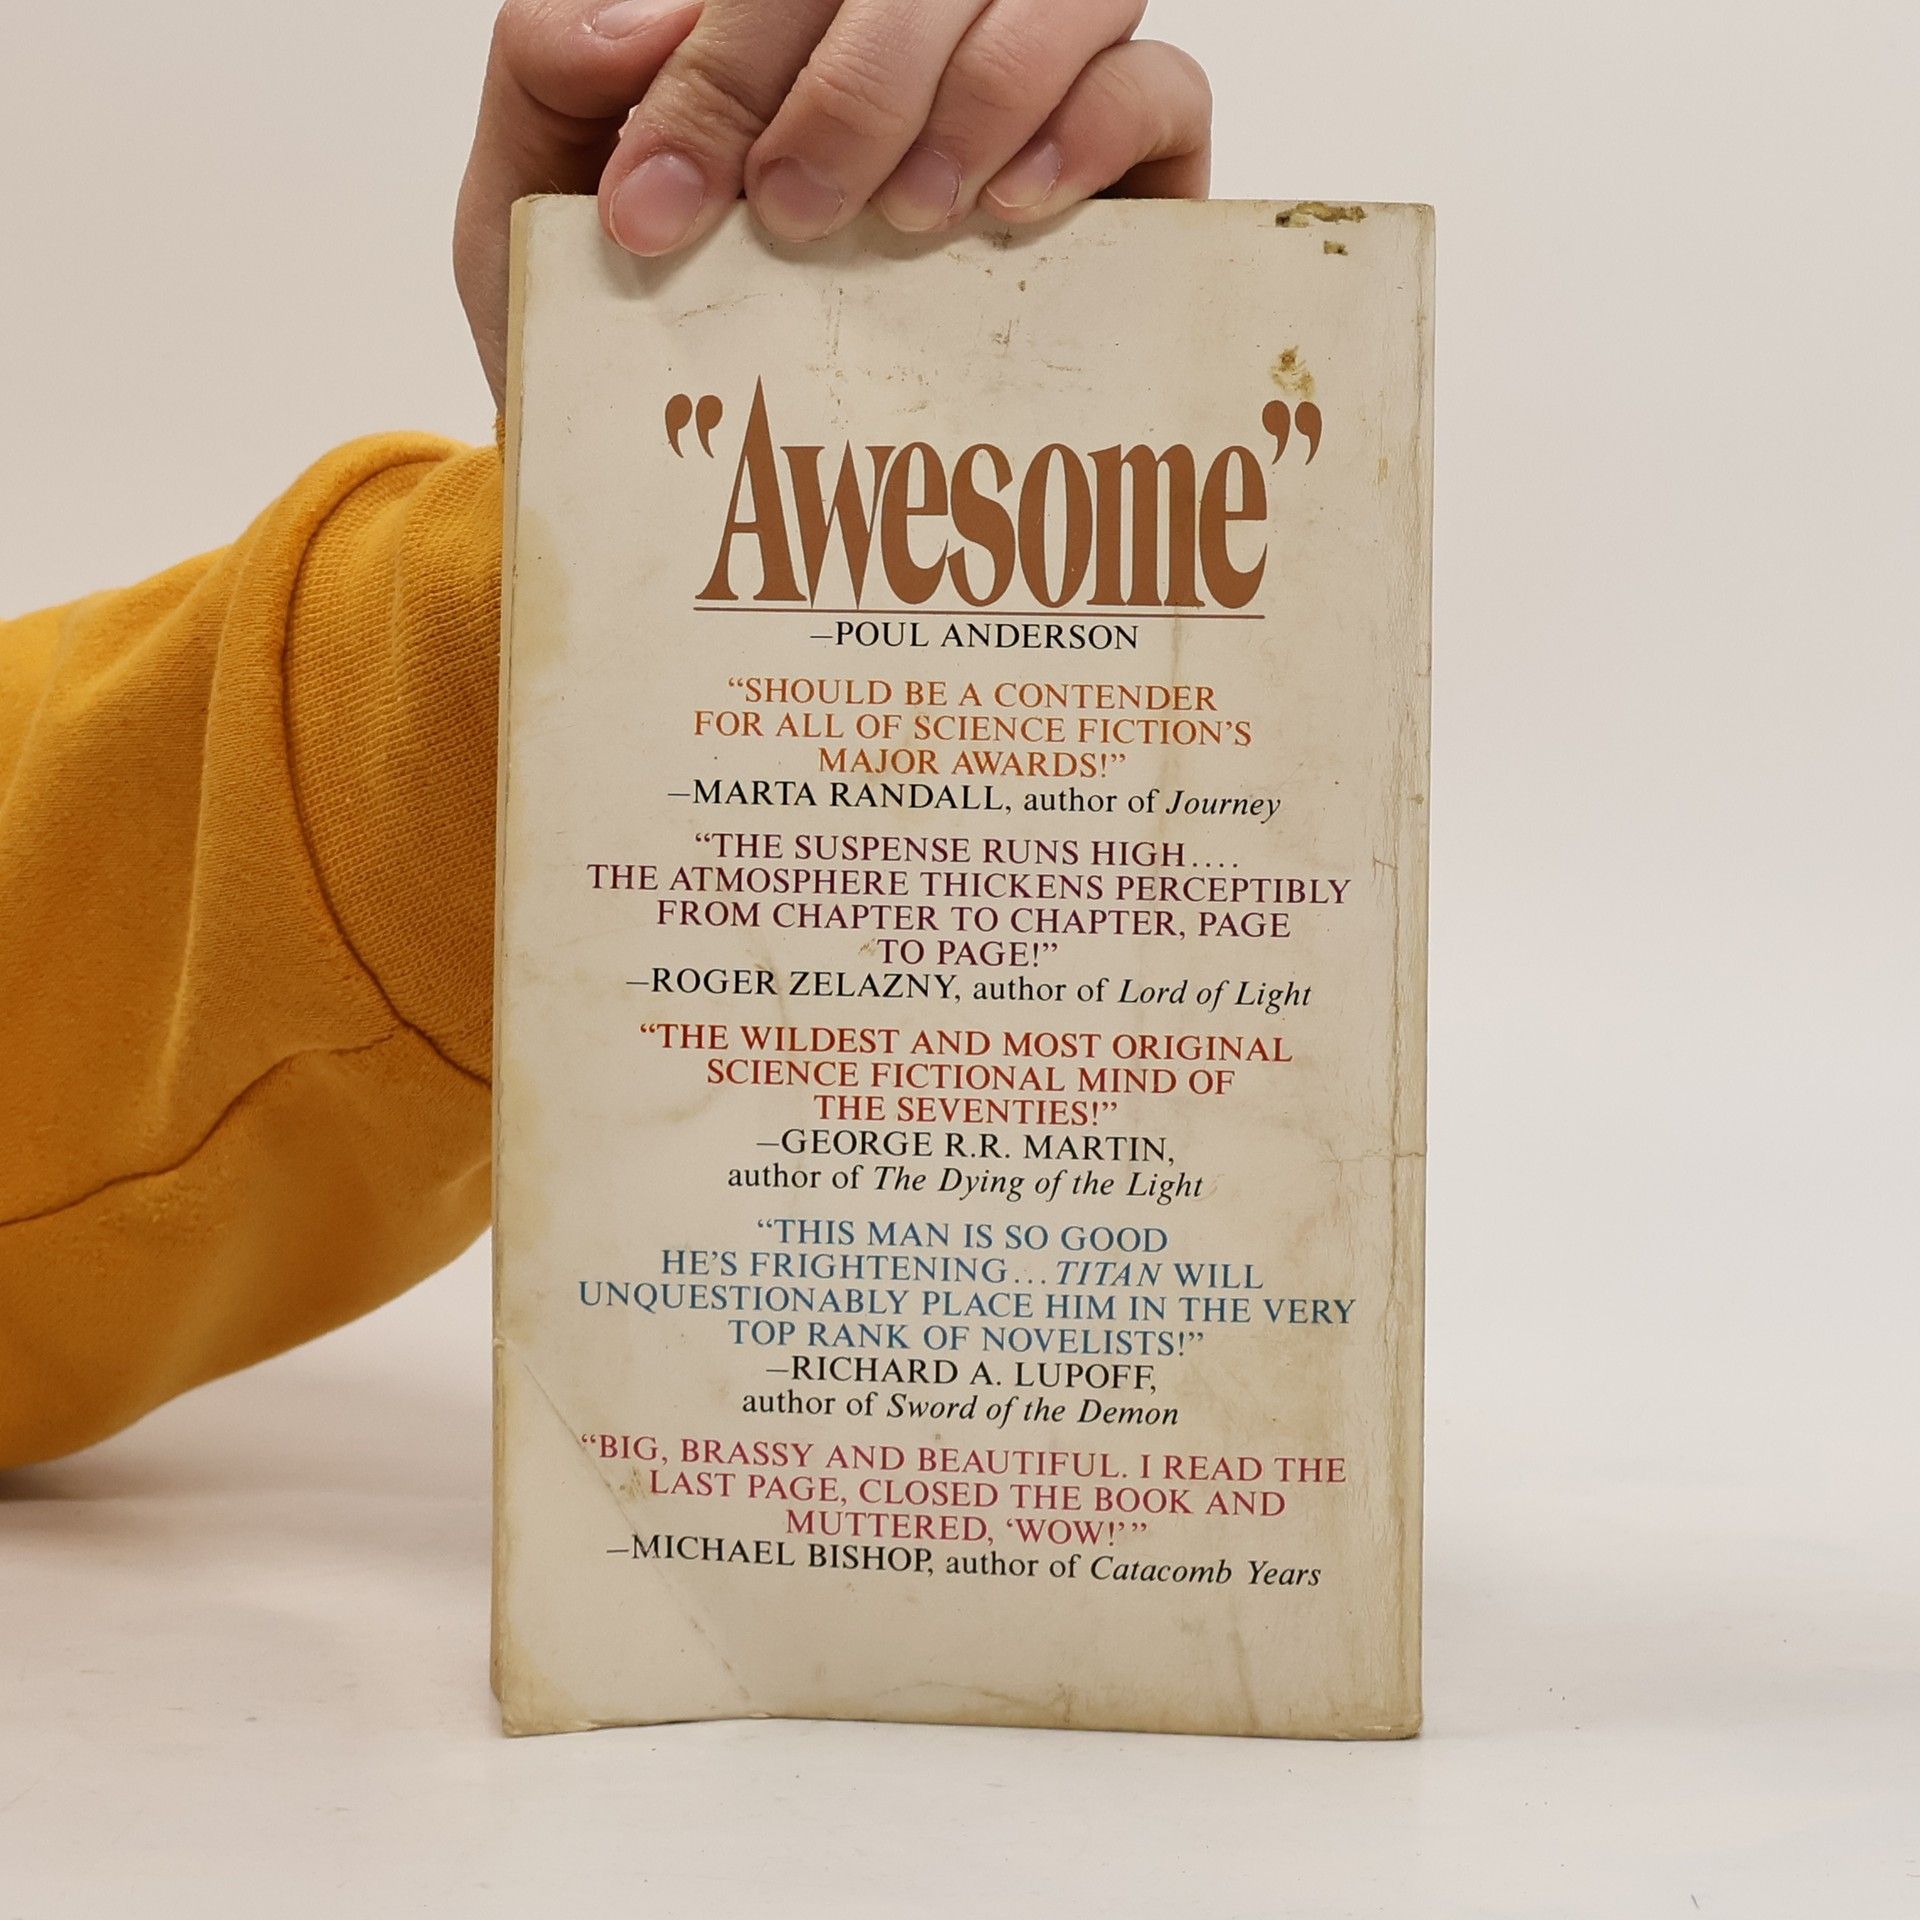 “Awesome”
–POUL ANDERSON
“SHOULD BE A CONTENDER
FOR ALL OF SCIENCE FICTION’S
MAJOR AWARDS!”
–MARTA RANDALL, author of Journey
“THE SUSPENSE RUNS HIGH....
THE ATMOSPHERE THICKENS PERCEPTIBLY
FROM CHAPTER TO CHAPTER, PAGE
TO PAGE!”
–ROGER ZELAZNY, author of Lord of Light
“THE WILDEST AND MOST ORIGINAL
SCIENCE FICTIONAL MIND OF
THE SEVENTIES!”
–GEORGE R.R. MARTIN,
author of The Dying of the Light
“THIS MAN IS SO GOOD
HE’S FRIGHTENING...TITAN WILL
UNQUESTIONABLY PLACE HIM IN THE VERY
TOP RANK OF NOVELISTS!”
–RICHARD A. LUPOFF,
author of Sword of the Demon
“BIG, BRASSY AND BEAUTIFUL. I READ THE
LAST PAGE, CLOSED THE BOOK AND
MUTTERED, ‘WOW!’”
–MICHAEL BISHOP, author of Catacomb Years